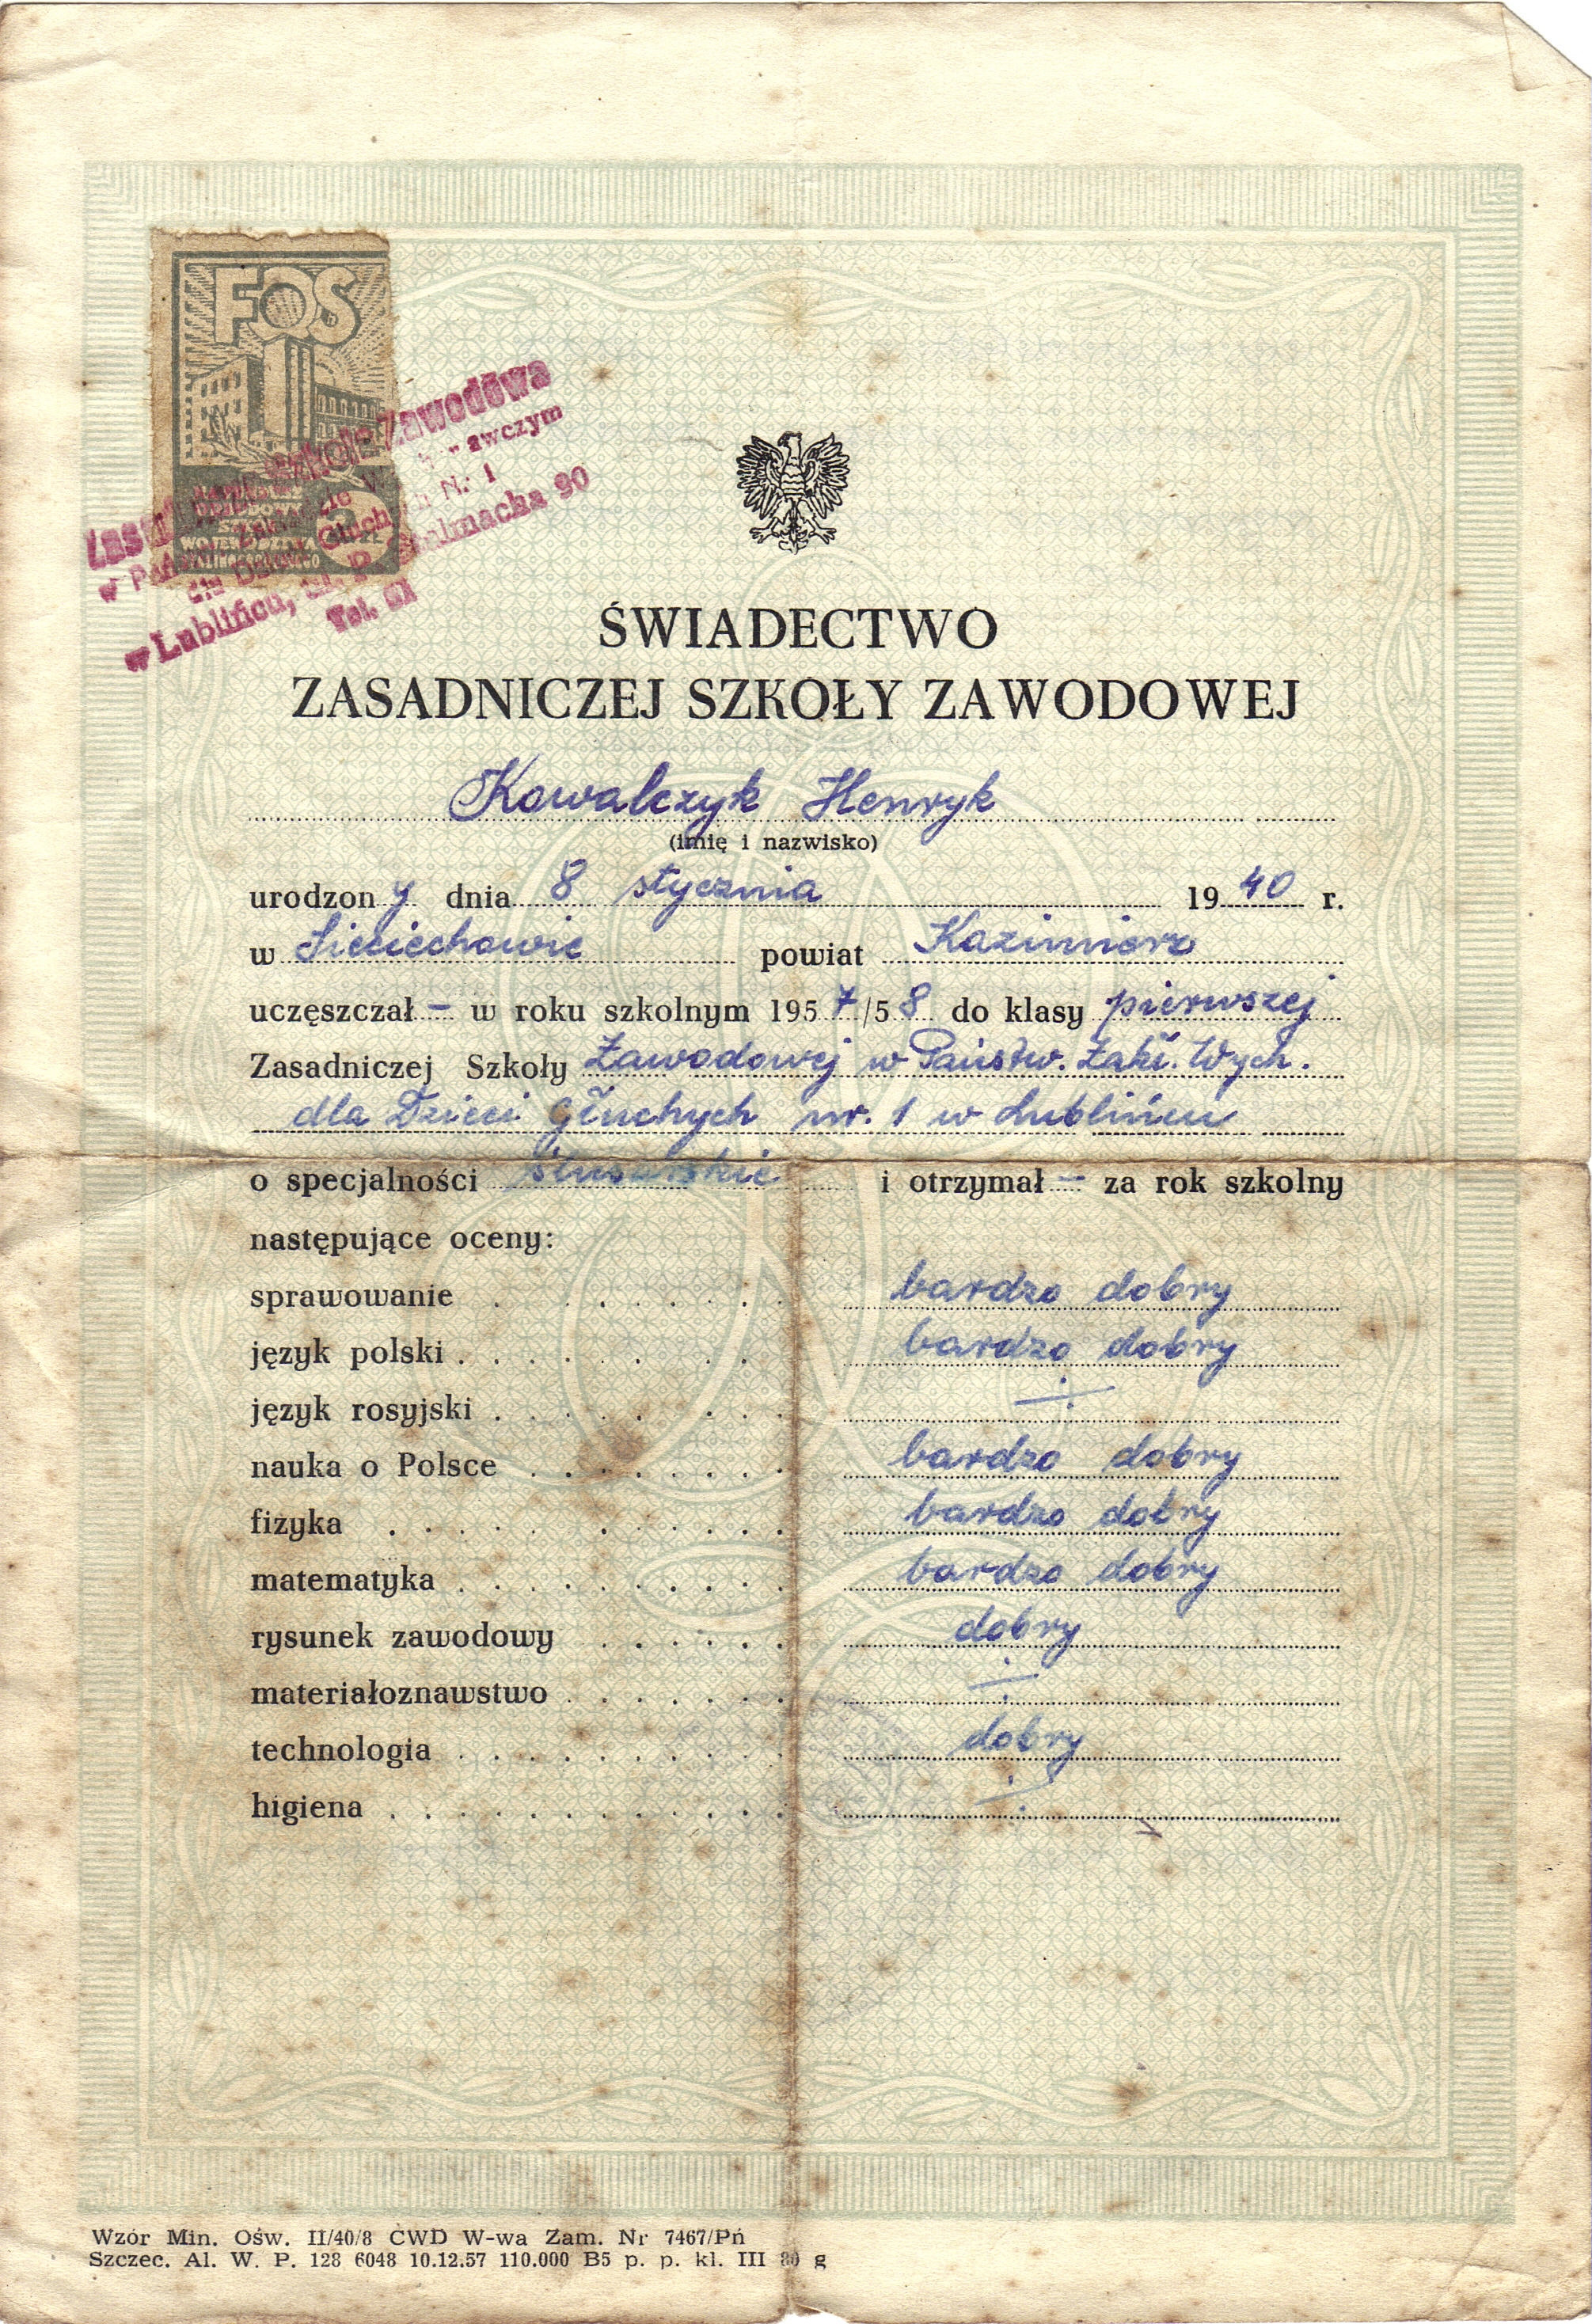 FOS
Szkoła Zawodowa
w Lublińcu, ul. P. Stalmacha 90
Tel. 61
ŚWIADECTWO
ZASADNICZEJ SZKOŁY ZAWODOWEJ
Kowalczyk Henryk
(imię i nazwisko)
urodzony dnia 8 stycznia 1940 r.
w Sieciechowie powiat Kazimierz
uczęszczał – w roku szkolnym 1957/58 do klasy pierwszej
Zasadniczej Szkoły Zawodowej w Państw. Zakł. Wych.
dla Dzieci Głuchych nr. 1 w Lublińcu
o specjalności ślusarskie i otrzymał – za rok szkolny
następujące oceny:
sprawowanie . . . . . . . bardzo dobry
język polski . . . . . . . . bardzo dobry
język rosyjski . . . . . . . ÷
nauka o Polsce . . . . . . . . bardzo dobry
fizyka . . . . . . . . . . . bardzo dobry
matematyka . . . . . . . . . . bardzo dobry
rysunek zawodowy . . . . . . dobry
materiałoznawstwo . . . . . . . ÷
technologia . . . . . . . . . . dobry
higiena . . . . . . . . . . . . ÷
Wzór Min. Ośw. II/40/8 CWD W-wa Zam. Nr 7467/Pń
Szczec. Al. W. P. 128 6048 10.12.57 110.000 B5 p. p. kl. III 80 g